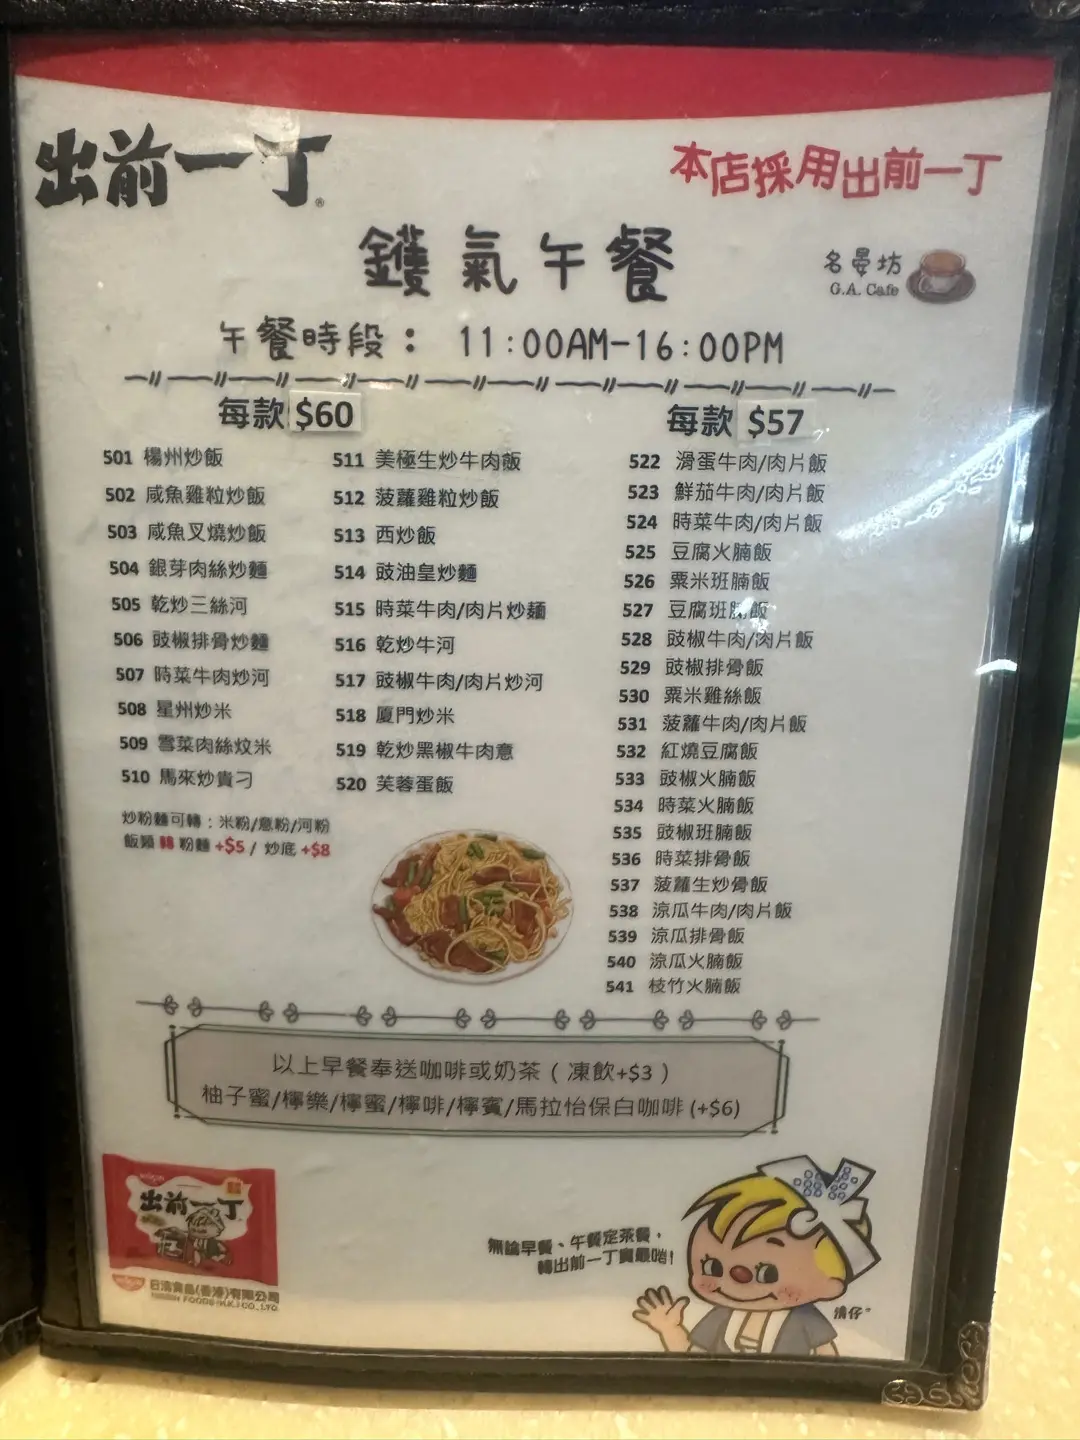 出前一丁®
本店採用出前一丁
鑊氣午餐
名晏坊
G.A. Cafe
午餐時段： 11:00AM-16:00PM
每款 $60
501 楊州炒飯
502 咸魚雞粒炒飯
503 咸魚叉燒炒飯
504 銀芽肉絲炒麵
505 乾炒三絲河
506 豉椒排骨炒麵
507 時菜牛肉炒河
508 星州炒米
509 雪菜肉絲炆米
510 馬來炒貴刁
511 美極生炒牛肉飯
512 菠蘿雞粒炒飯
513 西炒飯
514 豉油皇炒麵
515 時菜牛肉/肉片炒麵
516 乾炒牛河
517 豉椒牛肉/肉片炒河
518 廈門炒米
519 乾炒黑椒牛肉意
520 芙蓉蛋飯
炒粉麵可轉：米粉/意粉/河粉
飯類 轉 粉麵 +$5 / 炒底 +$8
每款 $57
522 滑蛋牛肉/肉片飯
523 鮮茄牛肉/肉片飯
524 時菜牛肉/肉片飯
525 豆腐火腩飯
526 粟米班腩飯
527 豆腐班腩飯
528 豉椒牛肉/肉片飯
529 豉椒排骨飯
530 粟米雞絲飯
531 菠蘿牛肉/肉片飯
532 紅燒豆腐飯
533 豉椒火腩飯
534 時菜火腩飯
535 豉椒班腩飯
536 時菜排骨飯
537 菠蘿生炒骨飯
538 涼瓜牛肉/肉片飯
539 涼瓜排骨飯
540 涼瓜火腩飯
541 枝竹火腩飯
以上早餐奉送咖啡或奶茶 ( 凍飲+$3 )
柚子蜜/檸樂/檸蜜/檸啡/檸賓/馬拉怡保白咖啡 (+$6)
NISSIN
出前一丁
NISSIN
日清食品(香港)有限公司
NISSIN FOODS (H.K.) CO., LTD.
無論早餐、午餐定茶餐，
轉出前一丁實最啱！
清仔®